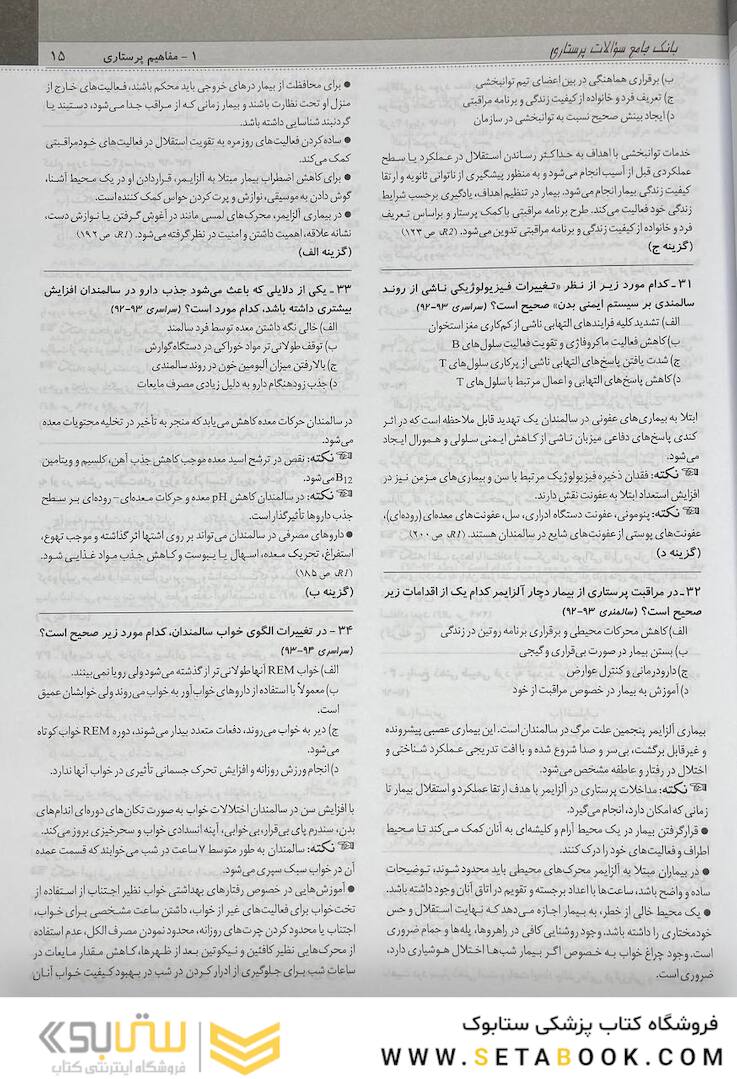 بانک جامع سؤالات پرستاری
۱ – مفاهیم پرستاری ۱۵
ب) برقراری هماهنگی در بین اعضای تیم توانبخشی
ج) تعریف فرد و خانواده از کیفیت زندگی و برنامه مراقبتی
د) ایجاد بینش صحیح نسبت به توانبخشی در سازمان
خدمات توانبخشی با اهداف به حداکثر رساندن استقلال در عملکرد یا سطح
عملکردی قبل از آسیب انجام می‌شود و به منظور پیشگیری از ناتوانی ثانویه و ارتقا
کیفیت زندگی بیمار انجام می‌شود. بیمار در تنظیم اهداف، یادگیری برحسب شرایط
زندگی خود فعالیت می‌کند. طرح برنامه مراقبتی با کمک پرستار و براساس تعریف
فرد و خانواده از کیفیت زندگی و برنامه مراقبتی تدوین می‌شود. (R2، ص ۱۲۳)
(گزینه ج)
۳۱ – کدام مورد زیر از نظر «تغییرات فیزیولوژیکی ناشی از روند
سالمندی بر سیستم ایمنی بدن» صحیح است؟ (سراسری ۹۳–۹۲)
الف) تشدید کلیه فرایندهای التهابی ناشی از کم‌کاری مغز استخوان
ب) کاهش فعالیت ماکروفاژی و تقویت فعالیت سلول‌های B
ج) شدت یافتن پاسخ‌های التهابی ناشی از پرکاری سلول‌های T
د) کاهش پاسخ‌های التهابی و اعمال مرتبط با سلول‌های T
ابتلا به بیماری‌های عفونی در سالمندان یک تهدید قابل ملاحظه است که در اثر
کندی پاسخ‌های دفاعی میزبان ناشی از کاهش ایمنی سلولی و همورال ایجاد
می‌شود.
نکته: فقدان ذخیره فیزیولوژیک مرتبط با سن و بیماری‌های مزمن نیز در
افزایش استعداد ابتلا به عفونت نقش دارند.
نکته: پنومونی، عفونت دستگاه ادراری، سل، عفونت‌های معده‌ای (روده‌ای)،
عفونت‌های پوستی از عفونت‌های شایع در سالمندان هستند. (R1، ص ۲۰۰)
(گزینه د)
۳۲ – در مراقبت پرستاری از بیمار دچار آلزایمر کدام یک از اقدامات زیر
صحیح است؟ (سالمندی ۹۳–۹۲)
الف) کاهش محرکات محیطی و برقراری برنامه روتین در زندگی
ب) بستن بیمار در صورت بی‌قراری و گیجی
ج) دارودرمانی و کنترل عوارض
د) آموزش به بیمار در خصوص مراقبت از خود
بیماری آلزایمر پنجمین علت مرگ در سالمندان است. این بیماری عصبی پیشرونده
و غیرقابل برگشت، بی‌سر و صدا شروع شده و با افت تدریجی عملکرد شناختی و
اختلال در رفتار و عاطفه مشخص می‌شود.
نکته: مداخلات پرستاری در آلزایمر با هدف ارتقا عملکرد و استقلال بیمار تا
زمانی که امکان دارد، انجام می‌گیرد.
● قرار گرفتن بیمار در یک محیط آرام و کلیشه‌ای به آنان کمک می‌کند تا محیط
اطراف و فعالیت‌های خود را درک کنند.
● در بیماران مبتلا به آلزایمر محرک‌های محیطی باید محدود شوند، توضیحات
ساده و واضح باشد، ساعت‌ها با اعداد برجسته و تقویم در اتاق آنان وجود داشته باشد.
● یک محیط خالی از خطر، به بیمار اجازه می‌دهد که نهایت استقلال و حس
خودمختاری را داشته باشد. وجود روشنایی کافی در راهروها، پله‌ها و حمام ضروری
است. وجود چراغ خواب به خصوص اگر بیمار شب‌ها اختلال هوشیاری دارد،
ضروری است.
● برای محافظت از بیمار درهای خروجی باید محکم باشند، فعالیت‌های خارج از
منزل او تحت نظارت باشند و بیمار زمانی که از مراقب جدا می‌شود، دستبند یا
گردنبند شناسایی داشته باشد.
● ساده کردن فعالیت‌های روزمره به تقویت استقلال در فعالیت‌های خودمراقبتی
کمک می‌کند.
● برای کاهش اضطراب بیمار مبتلا به آلزایمر، قراردادن او در یک محیط آشنا،
گوش دادن به موسیقی، نوازش و پرت کردن حواس کمک کننده است.
● در بیماری آلزایمر، محرک‌های لمسی مانند در آغوش گرفتن یا نوازش دست،
نشانه علاقه، اهمیت داشتن و امنیت در نظر گرفته می‌شود. (R1، ص ۱۹۲)
(گزینه الف)
۳۳ – یکی از دلایلی که باعث می‌شود جذب دارو در سالمندان افزایش
بیشتری داشته باشد، کدام مورد است؟ (سراسری ۹۳–۹۲)
الف) خالی نگه داشتن معده توسط فرد سالمند
ب) توقف طولانی‌تر مواد خوراکی در دستگاه گوارش
ج) بالا رفتن میزان آلبومین خون در روند سالمندی
د) جذب زودهنگام دارو به دلیل زیادی مصرف مایعات
در سالمندان حرکات معده کاهش می‌یابد که منجر به تأخیر در تخلیه محتویات معده
می‌شود.
نکته: نقص در ترشح اسید معده موجب کاهش جذب آهن، کلسیم و ویتامین
B12 می‌شود.
نکته: در سالمندان کاهش pH معده و حرکات معده‌ای – روده‌ای بر سطح
جذب داروها تأثیرگذار است.
● داروهای مصرفی در سالمندان می‌تواند بر روی اشتها اثر گذاشته و موجب تهوع،
استفراغ، تحریک معده، اسهال یا یبوست و کاهش جذب مواد غذایی شود.
(R1، ص ۱۸۵)
(گزینه ب)
۳۴ – در تغییرات الگوی خواب سالمندان، کدام مورد زیر صحیح است؟
(سراسری ۹۴–۹۳)
الف) خواب REM آنها طولانی‌تر از گذشته می‌شود ولی رویا نمی‌بینند.
ب) معمولاً با استفاده از داروهای خواب‌آور به خواب می‌روند ولی خوابشان عمیق
است.
ج) دیر به خواب می‌روند، دفعات متعدد بیدار می‌شوند، دوره REM خواب کوتاه
می‌شود.
د) انجام ورزش روزانه و افزایش تحرک جسمانی تأثیری در خواب آنها ندارد.
با افزایش سن در سالمندان اختلالات خواب به صورت تکان‌های دوره‌ای اندام‌های
بدن، سندرم پای بی‌قرار، بی‌خوابی، آپنه انسدادی خواب و سحرخیزی بروز می‌کند.
نکته: سالمندان به طور متوسط ۷ ساعت در شب می‌خوابند که قسمت عمده
آن در خواب سبک سپری می‌شود.
● آموزش‌هایی در خصوص رفتارهای بهداشتی خواب نظیر اجتناب از استفاده از
تخت‌خواب برای فعالیت‌های غیر از خواب، داشتن ساعت مشخصی برای خواب،
اجتناب یا محدود کردن چرت‌های روزانه، محدود نمودن مصرف الکل، عدم استفاده
از محرک‌هایی نظیر کافئین و نیکوتین بعد از ظهرها، کاهش مقدار مایعات در
ساعات شب برای جلوگیری از ادرار کردن در شب در بهبود کیفیت خواب آنان
فروشگاه کتاب پزشکی ستابوک
WWW.SETABOOK.COM
ستابوک
فروشگاه اینترنتی کتاب